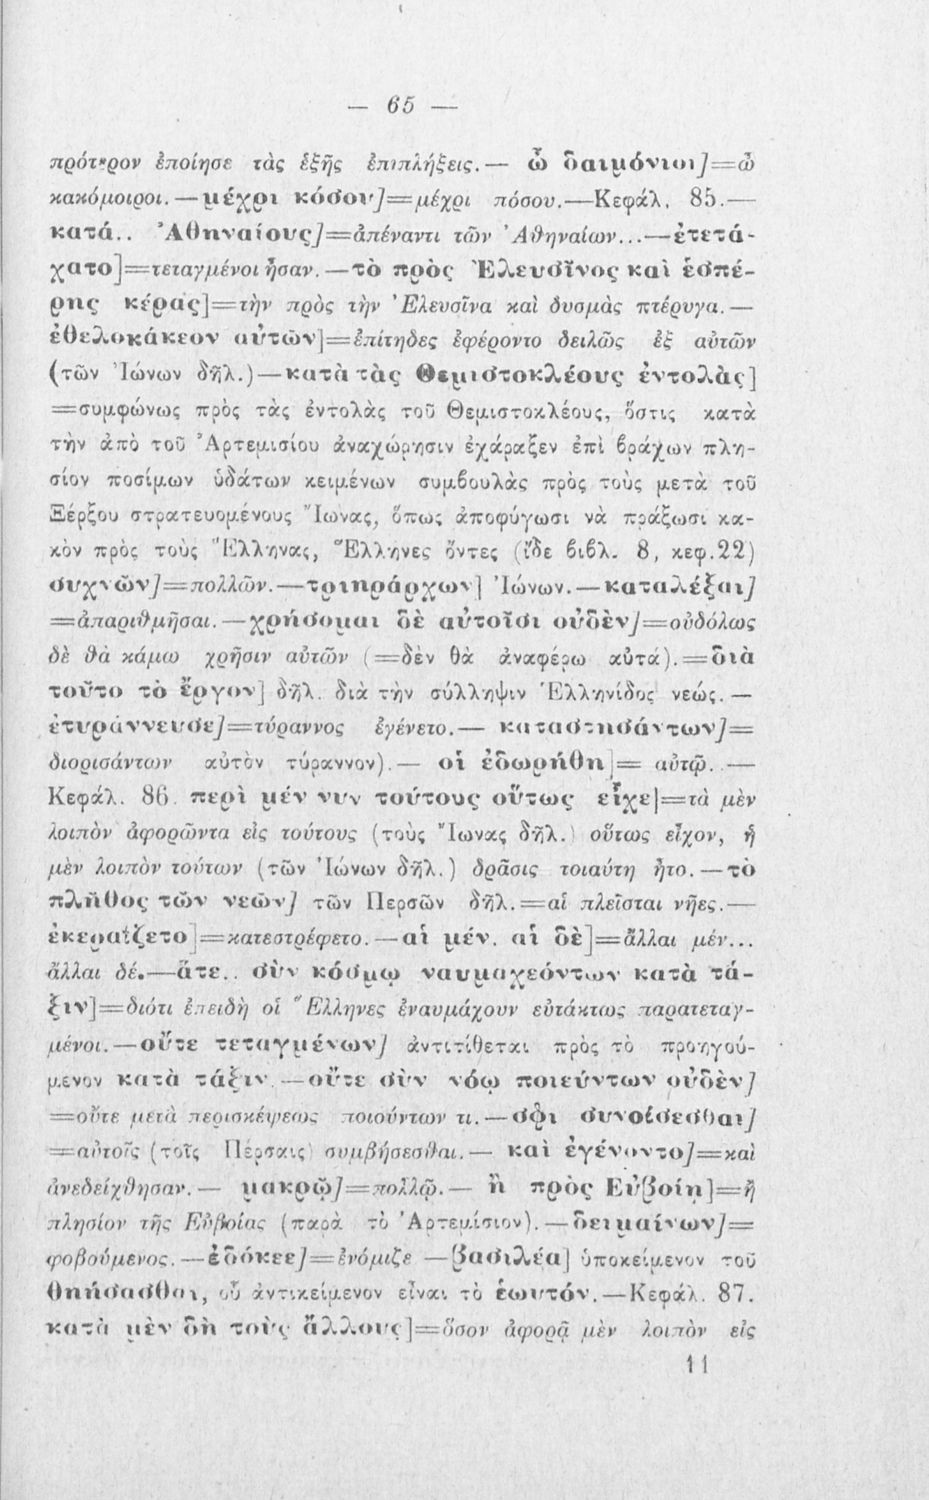 — 65 —
πρότερον ἐποίησε τὰς ἑξῆς ἐπιπλήξεις.— ὦ δαιμόνιοι]=ὦ
κακόμοιροι.—μέχρι κόσου]=μέχρι πόσου.—Κεφάλ. 85.—
κατά.. Ἀθηναίους]=ἀπέναντι τῶν Ἀθηναίων...—ἐτετά-
χατο]=τεταγμένοι ἦσαν.—τὸ πρὸς Ἐλευσῖνος καὶ ἑσπέ-
ρης κέρας]=τὴν πρὸς τὴν Ἐλευσῖνα καὶ δυσμὰς πτέρυγα.—
ἐθελοκάκεον αὐτῶν]=ἐπίτηδες ἐφέροντο δειλῶς ἐξ αὐτῶν
(τῶν Ἰώνων δῆλ.)—κατὰ τὰς Θεμιστοκλέους ἐντολὰς]
=συμφώνως πρὸς τὰς ἐντολὰς τοῦ Θεμιστοκλέους, ὅστις κατὰ
τὴν ἀπὸ τοῦ Ἀρτεμισίου ἀναχώρησιν ἐχάραξεν ἐπὶ βράχων πλη-
σίον ποσίμων ὑδάτων κειμένων συμβουλὰς πρὸς τοὺς μετὰ τοῦ
Ξέρξου στρατευομένους Ἴωνας, ὅπως ἀποφύγωσι νὰ πράξωσι κα-
κὸν πρὸς τοὺς Ἕλληνας, Ἕλληνες ὄντες (ἴδε βιβλ. 8, κεφ.22)
συχνῶν]=πολλῶν.—τριηράρχων] Ἰώνων.—καταλέξαι]
=ἀπαριθμῆσαι.—χρήσομαι δὲ αὐτοῖσι οὐδὲν]=οὐδόλως
δὲ θὰ κάμω χρῆσιν αὐτῶν (=δὲν θὰ ἀναφέρω αὐτά).=διὰ
τοῦτο τὸ ἔργον] δῆλ. διὰ τὴν σύλληψιν Ἑλληνίδος νεώς.—
ἐτυράννευσε]=τύραννος ἐγένετο.— καταστησάντων]=
διορισάντων αὐτὸν τύραννον).— οἱ ἐδωρήθη]= αὐτῷ.—
Κεφάλ. 86. περὶ μέν νυν τούτους οὕτως εἶχε]=τὰ μὲν
λοιπὸν ἀφορῶντα εἰς τούτους (τοὺς Ἴωνας δῆλ.) οὕτως εἶχον, ἡ
μὲν λοιπὸν τούτων (τῶν Ἰώνων δῆλ.) δρᾶσις τοιαύτη ἦτο.—τὸ
πλῆθος τῶν νεῶν] τῶν Περσῶν δῆλ.=αἱ πλεῖσται νῆες.—
ἐκεραΐζετο]=κατεστρέφετο.—αἱ μέν. αἱ δὲ]=ἄλλαι μέν...
ἄλλαι δέ.—ἅτε.. σὺν κόσμῳ ναυμαχεόντων κατὰ τά-
ξιν]=διότι ἐπειδὴ οἱ Ἕλληνες ἐναυμάχουν εὐτάκτως παρατεταγ-
μένοι.—οὔτε τεταγμένων] ἀντιτίθεται πρὸς τὸ προηγού-
μενον κατὰ τάξιν.—οὔτε σὺν νόῳ ποιεύντων οὐδὲν]
=οὔτε μετὰ περισκέψεως ποιούντων τι.—σφι συνοίσεσθαι]
=αὐτοῖς (τοῖς Πέρσαις) συμβήσεσθαι.— καὶ ἐγένοντο]=καὶ
ἀνεδείχθησαν.— μακρῷ]=πολλῷ.— ἢ πρὸς Εὐβοίῃ]=ἢ
πλησίον τῆς Εὐβοίας (παρὰ τὸ Ἀρτεμίσιον).—δειμαίνων]=
φοβούμενος.—ἐδόκεε]=ἐνόμιζε —βασιλέα] ὑποκείμενον τοῦ
θηήσασθαι, οὗ ἀντικείμενον εἶναι τὸ ἑωυτόν.—Κεφάλ. 87.
κατὰ μὲν δὴ τοὺς ἄλλους]=ὅσον ἀφορᾷ μὲν λοιπὸν εἰς
11